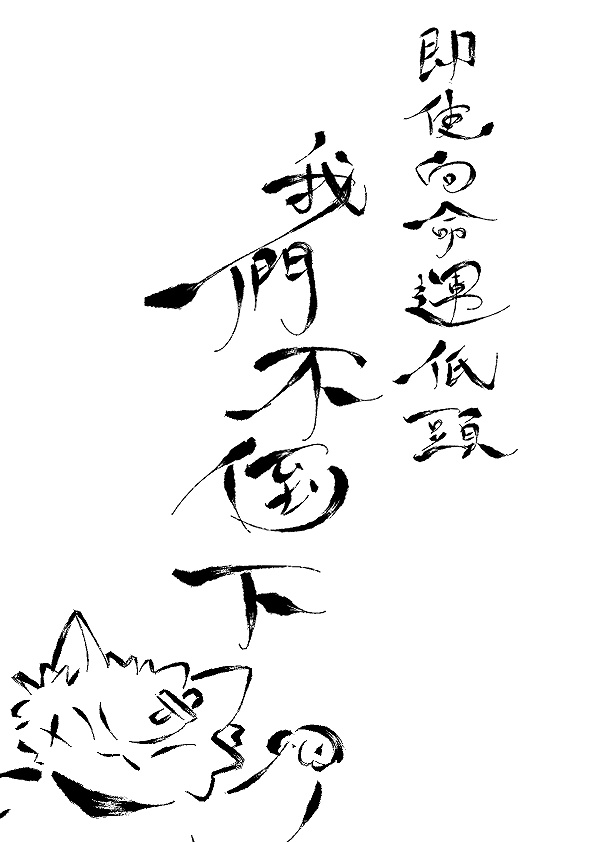 即使向命運低頭
我們不倒下